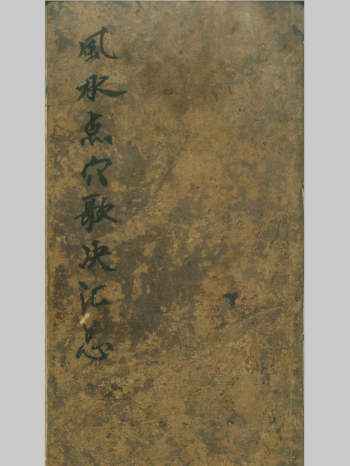 風水点穴歌决汇总